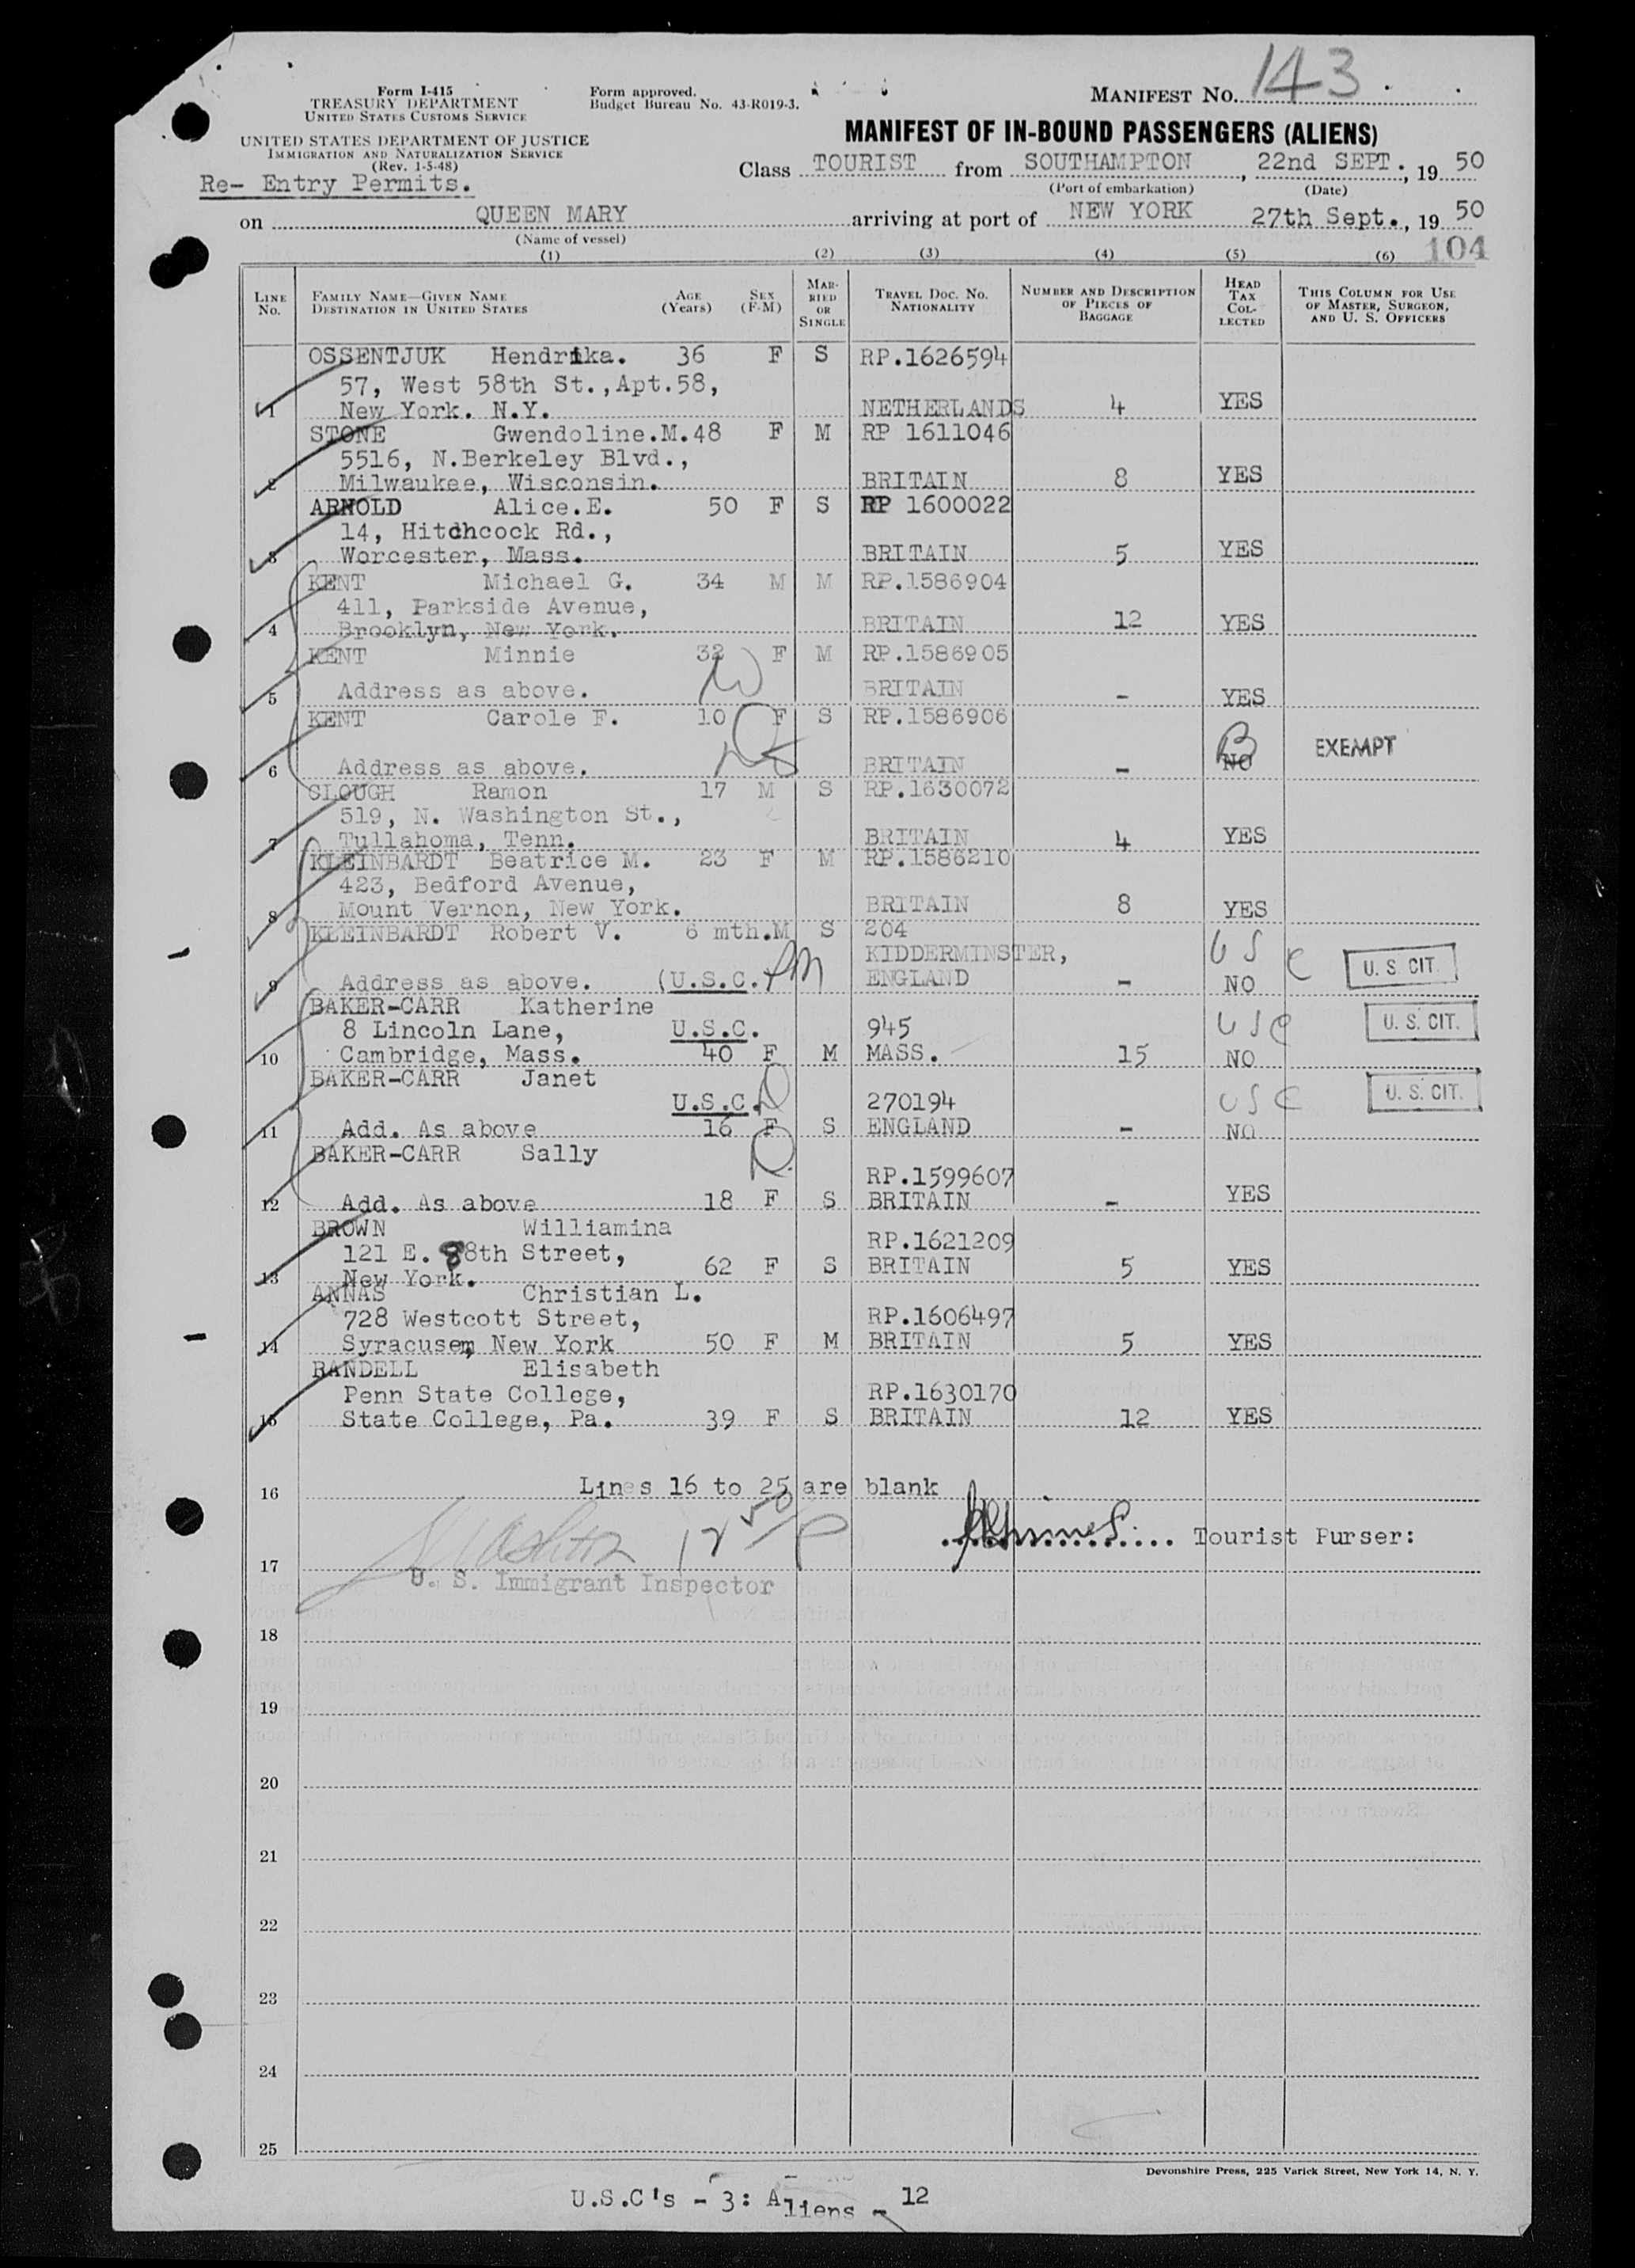 Form I-415
TREASURY DEPARTMENT
UNITED STATES CUSTOMS SERVICE
UNITED STATES DEPARTMENT OF JUSTICE
IMMIGRATION AND NATURALIZATION SERVICE
(Rev. 1-5-48)
Re- Entry Permits.
Form approved.
Budget Bureau No. 43-R019-3.
MANIFEST NO. 143
MANIFEST OF IN-BOUND PASSENGERS (ALIENS)
Class TOURIST from SOUTHAMPTON, 22nd SEPT., 19 50
(Port of embarkation) (Date)
on QUEEN MARY arriving at port of NEW YORK 27th Sept., 19 50
(Name of vessel)
104
(1) (2) (3) (4) (5) (6)
LINE NO. FAMILY NAME—GIVEN NAME DESTINATION IN UNITED STATES AGE (Years) SEX (F-M) MARRIED OR SINGLE TRAVEL DOC. NO. NATIONALITY NUMBER AND DESCRIPTION OF PIECES OF BAGGAGE HEAD TAX COLLECTED THIS COLUMN FOR USE OF MASTER, SURGEON, AND U. S. OFFICERS
OSSENTJUK Hendrika. 36 F S RP.1626594
57, West 58th St.,Apt.58,
1 New York. N.Y. NETHERLANDS 4 YES
STONE Gwendoline.M. 48 F M RP 1611046
5516, N.Berkeley Blvd.,
2 Milwaukee, Wisconsin. BRITAIN 8 YES
ARNOLD Alice.E. 50 F S RP 1600022
14, Hitchcock Rd.,
3 Worcester, Mass. BRITAIN 5 YES
KENT Michael G. 34 M M RP.1586904
411, Parkside Avenue,
4 Brooklyn, New York. BRITAIN 12 YES
KENT Minnie 32 F M RP.1586905
5 Address as above. BRITAIN - YES
KENT Carole F. 10 F S RP.1586906
6 Address as above. BRITAIN - NO EXEMPT
CLOUGH Ramon 17 M S RP.1630072
519, N. Washington St.,
7 Tullahoma, Tenn. BRITAIN 4 YES
KLEINBARDT Beatrice M. 23 F M RP.1586210
423, Bedford Avenue,
8 Mount Vernon, New York. BRITAIN 8 YES
KLEINBARDT Robert V. 6 mth.M S 204
KIDDERMINSTER, U S C U. S. CIT.
9 Address as above. (U.S.C. ENGLAND - NO
BAKER-CARR Katherine
8 Lincoln Lane, U.S.C. 945 U S C U. S. CIT.
10 Cambridge, Mass. 40 F M MASS. 15 NO
BAKER-CARR Janet
U.S.C. 270194 U S C U. S. CIT.
11 Add. As above 16 F S ENGLAND - NO
BAKER-CARR Sally
RP.1599607
12 Add. As above 18 F S BRITAIN - YES
BROWN Williamina
121 E. 88th Street, RP.1621209
13 New York. 62 F S BRITAIN 5 YES
ANNAS Christian L.
728 Westcott Street, RP.1606497
14 Syracuse, New York 50 F M BRITAIN 5 YES
RANDELL Elisabeth
Penn State College, RP.1630170
15 State College, Pa. 39 F S BRITAIN 12 YES
16 Lines 16 to 25 are blank
Tourist Purser:
17
U. S. Immigrant Inspector
18
19
20
21
22
23
24
25
Devonshire Press, 225 Varick Street, New York 14, N. Y.
U.S.C's - 3: Aliens - 12